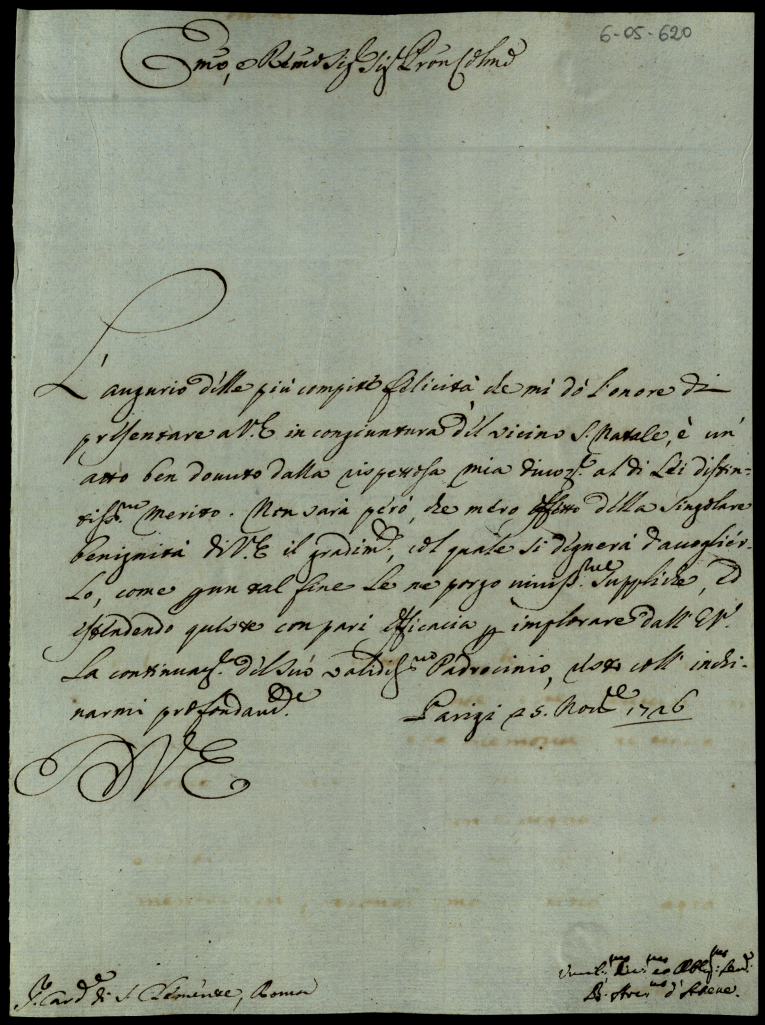 6-05-620
Emo, e Rmo Sig. Sig. Pron Colmo
L'augurio delle più compite felicità, che mi dò l'onore di
presentare a V.E. in congiuntura del vicino S. Natale, è un'
atto ben dovuto dalla rispettosa mia divoz.e al di Lei distin-
tiss.mo merito. Non sarà però, che mero effetto della singolare
benignità di V.E. il gradim.to, col quale si degnerà d'accoglier-
lo, come p un tal fine Le ne porgo viviss.me suppliche, ed
estendendo queste con pari efficacia p implorare dall' E.V.
La continuaz.e del suo validiss.mo Padrocinio, resto coll' inchi-
narmi profondam.te
Parigi 25. Nov.bre 1726
D V.E.
Sr. Card.le di S. Clemente, Roma
Umil.mo Div.mo ed Obblig.mo Serv.
L'Arciv.o d'Atene.